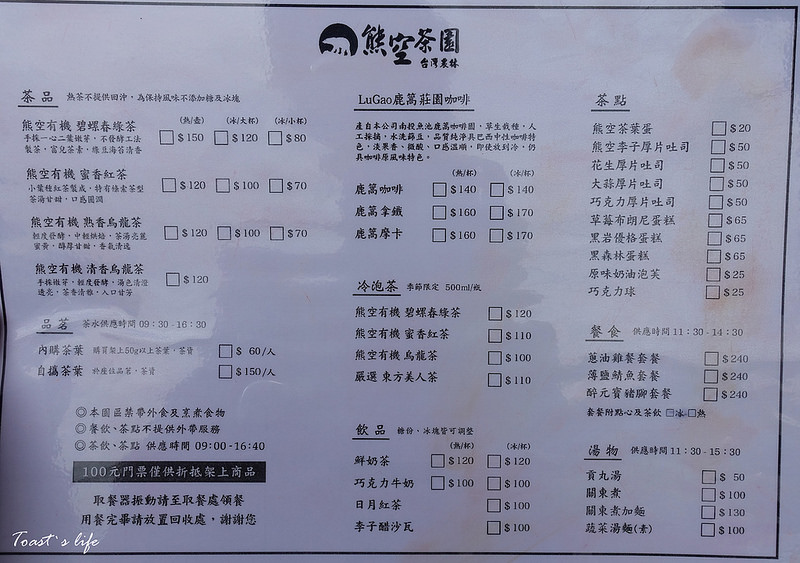 熊空茶園
台灣農林
茶品 熱茶不提供回沖，為保持風味不添加糖及冰塊
(熱/壺) (冰/大杯) (冰/小杯)
熊空有機 碧螺春綠茶 $150 $120 $80
手採一心二葉嫩芽，不發酵工法
製茶，富兒茶素，綠豆海苔清香
熊空有機 蜜香紅茶 $120 $100 $70
小葉種紅茶製成，特有條索茶型
茶湯甘甜，口感圓潤
熊空有機 熟香烏龍茶 $120 $100 $70
輕度發酵，中輕烘焙，茶湯亮麗
蜜黃，醇厚甘甜，香氣清逸
熊空有機 清香烏龍茶 $120
手採嫩芽，輕度發酵，湯色清澄
透亮，茶香清雅，入口甘芳
品茗 茶水供應時間 09:30-16:30
內購茶葉 購買架上50g以上茶葉，茶資 $ 60/人
自攜茶葉 於座位品茗，茶資 $150/人
◎本園區禁帶外食及烹煮食物
◎餐飲、茶點不提供外帶服務
◎茶飲、茶點 供應時間 09:00-16:40
100元門票僅供折抵架上商品
取餐器振動請至取餐處領餐
用餐完畢請放置回收處，謝謝您
LuGao鹿篙莊園咖啡
產自本公司南投魚池鹿篙咖啡園，草生栽種，人
工採摘，水洗篩豆，品質純淨具巴西中性咖啡特
色，淡果香、微酸、口感溫順，即使放到冷，仍
具咖啡原風味特色。
(熱/杯) (冰/杯)
鹿篙咖啡 $140 $140
鹿篙拿鐵 $160 $170
鹿篙摩卡 $160 $170
冷泡茶 季節限定 500ml/瓶
熊空有機 碧螺春綠茶 $120
熊空有機 蜜香紅茶 $110
熊空有機 烏龍茶 $100
嚴選 東方美人茶 $110
飲品 糖份、冰塊皆可調整
(熱/杯) (冰/杯)
鮮奶茶 $120 $120
巧克力牛奶 $100 $100
日月紅茶 $100
李子醋沙瓦 $100
茶點
熊空茶葉蛋 $20
熊空李子厚片吐司 $50
花生厚片吐司 $50
大蒜厚片吐司 $50
巧克力厚片吐司 $50
草莓布朗尼蛋糕 $65
黑岩優格蛋糕 $65
黑森林蛋糕 $65
原味奶油泡芙 $25
巧克力球 $25
餐食 供應時間 11:30-14:30
蔥油雞餐套餐 $240
薄鹽鯖魚套餐 $240
醉元寶豬腳套餐 $240
套餐附點心及茶飲 冰 熱
湯物 供應時間 11:30-15:30
貢丸湯 $ 50
關東煮 $100
關東煮加麵 $130
蔬菜湯麵(素) $100
Toast's life